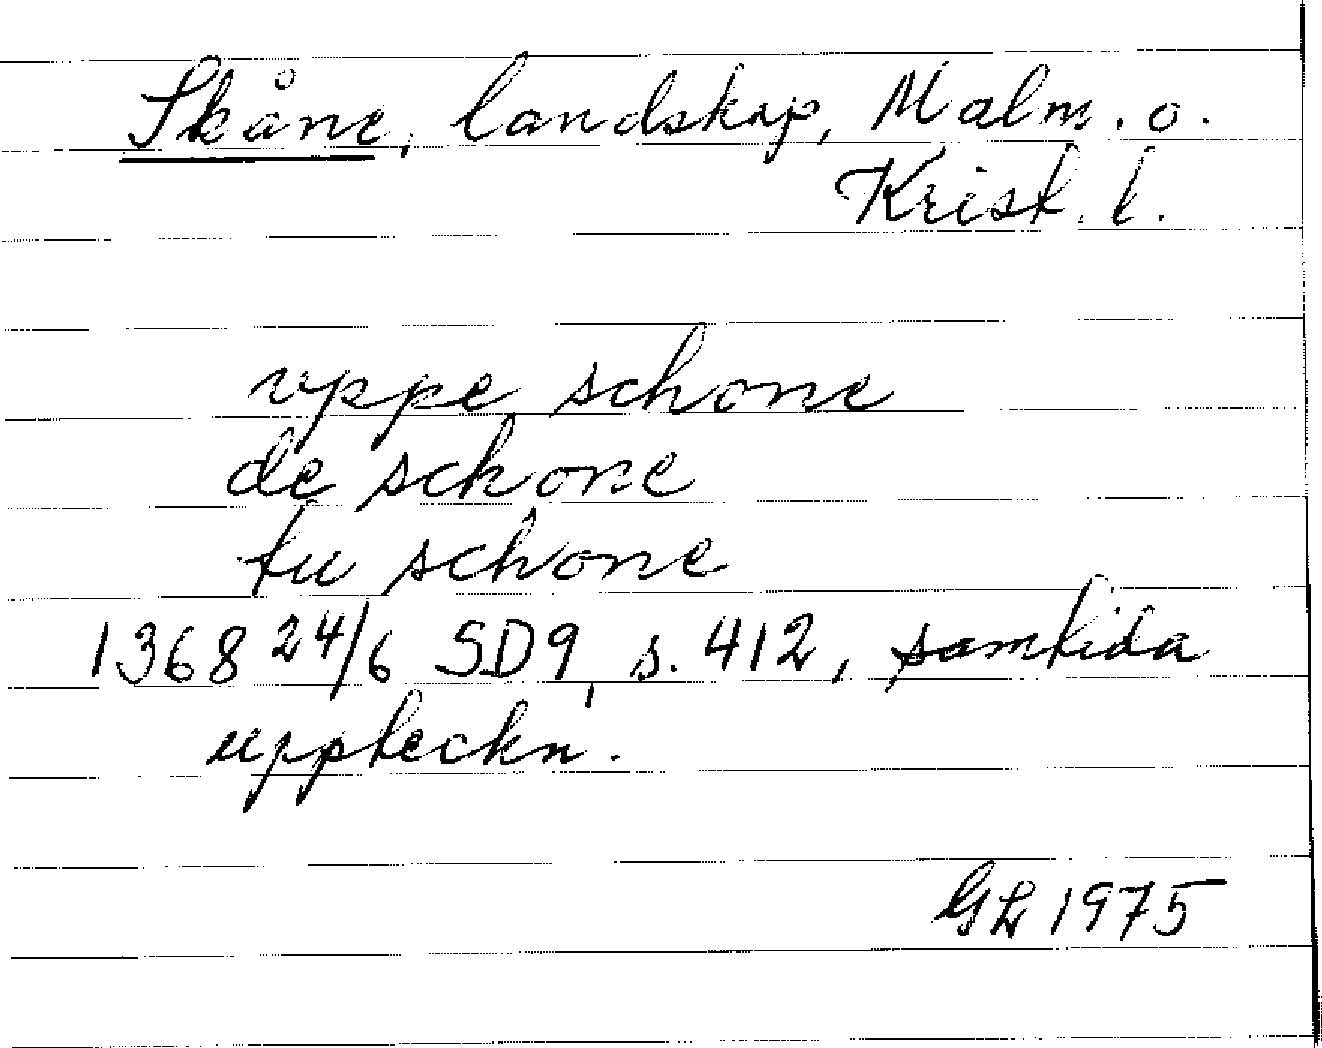 Skåne, landskap, Malm. o.
Krist. l.
vppe schone
de schone
tu schone
1368 24/6 SD9, s. 412, samtida
uppteckn.
GL 1975